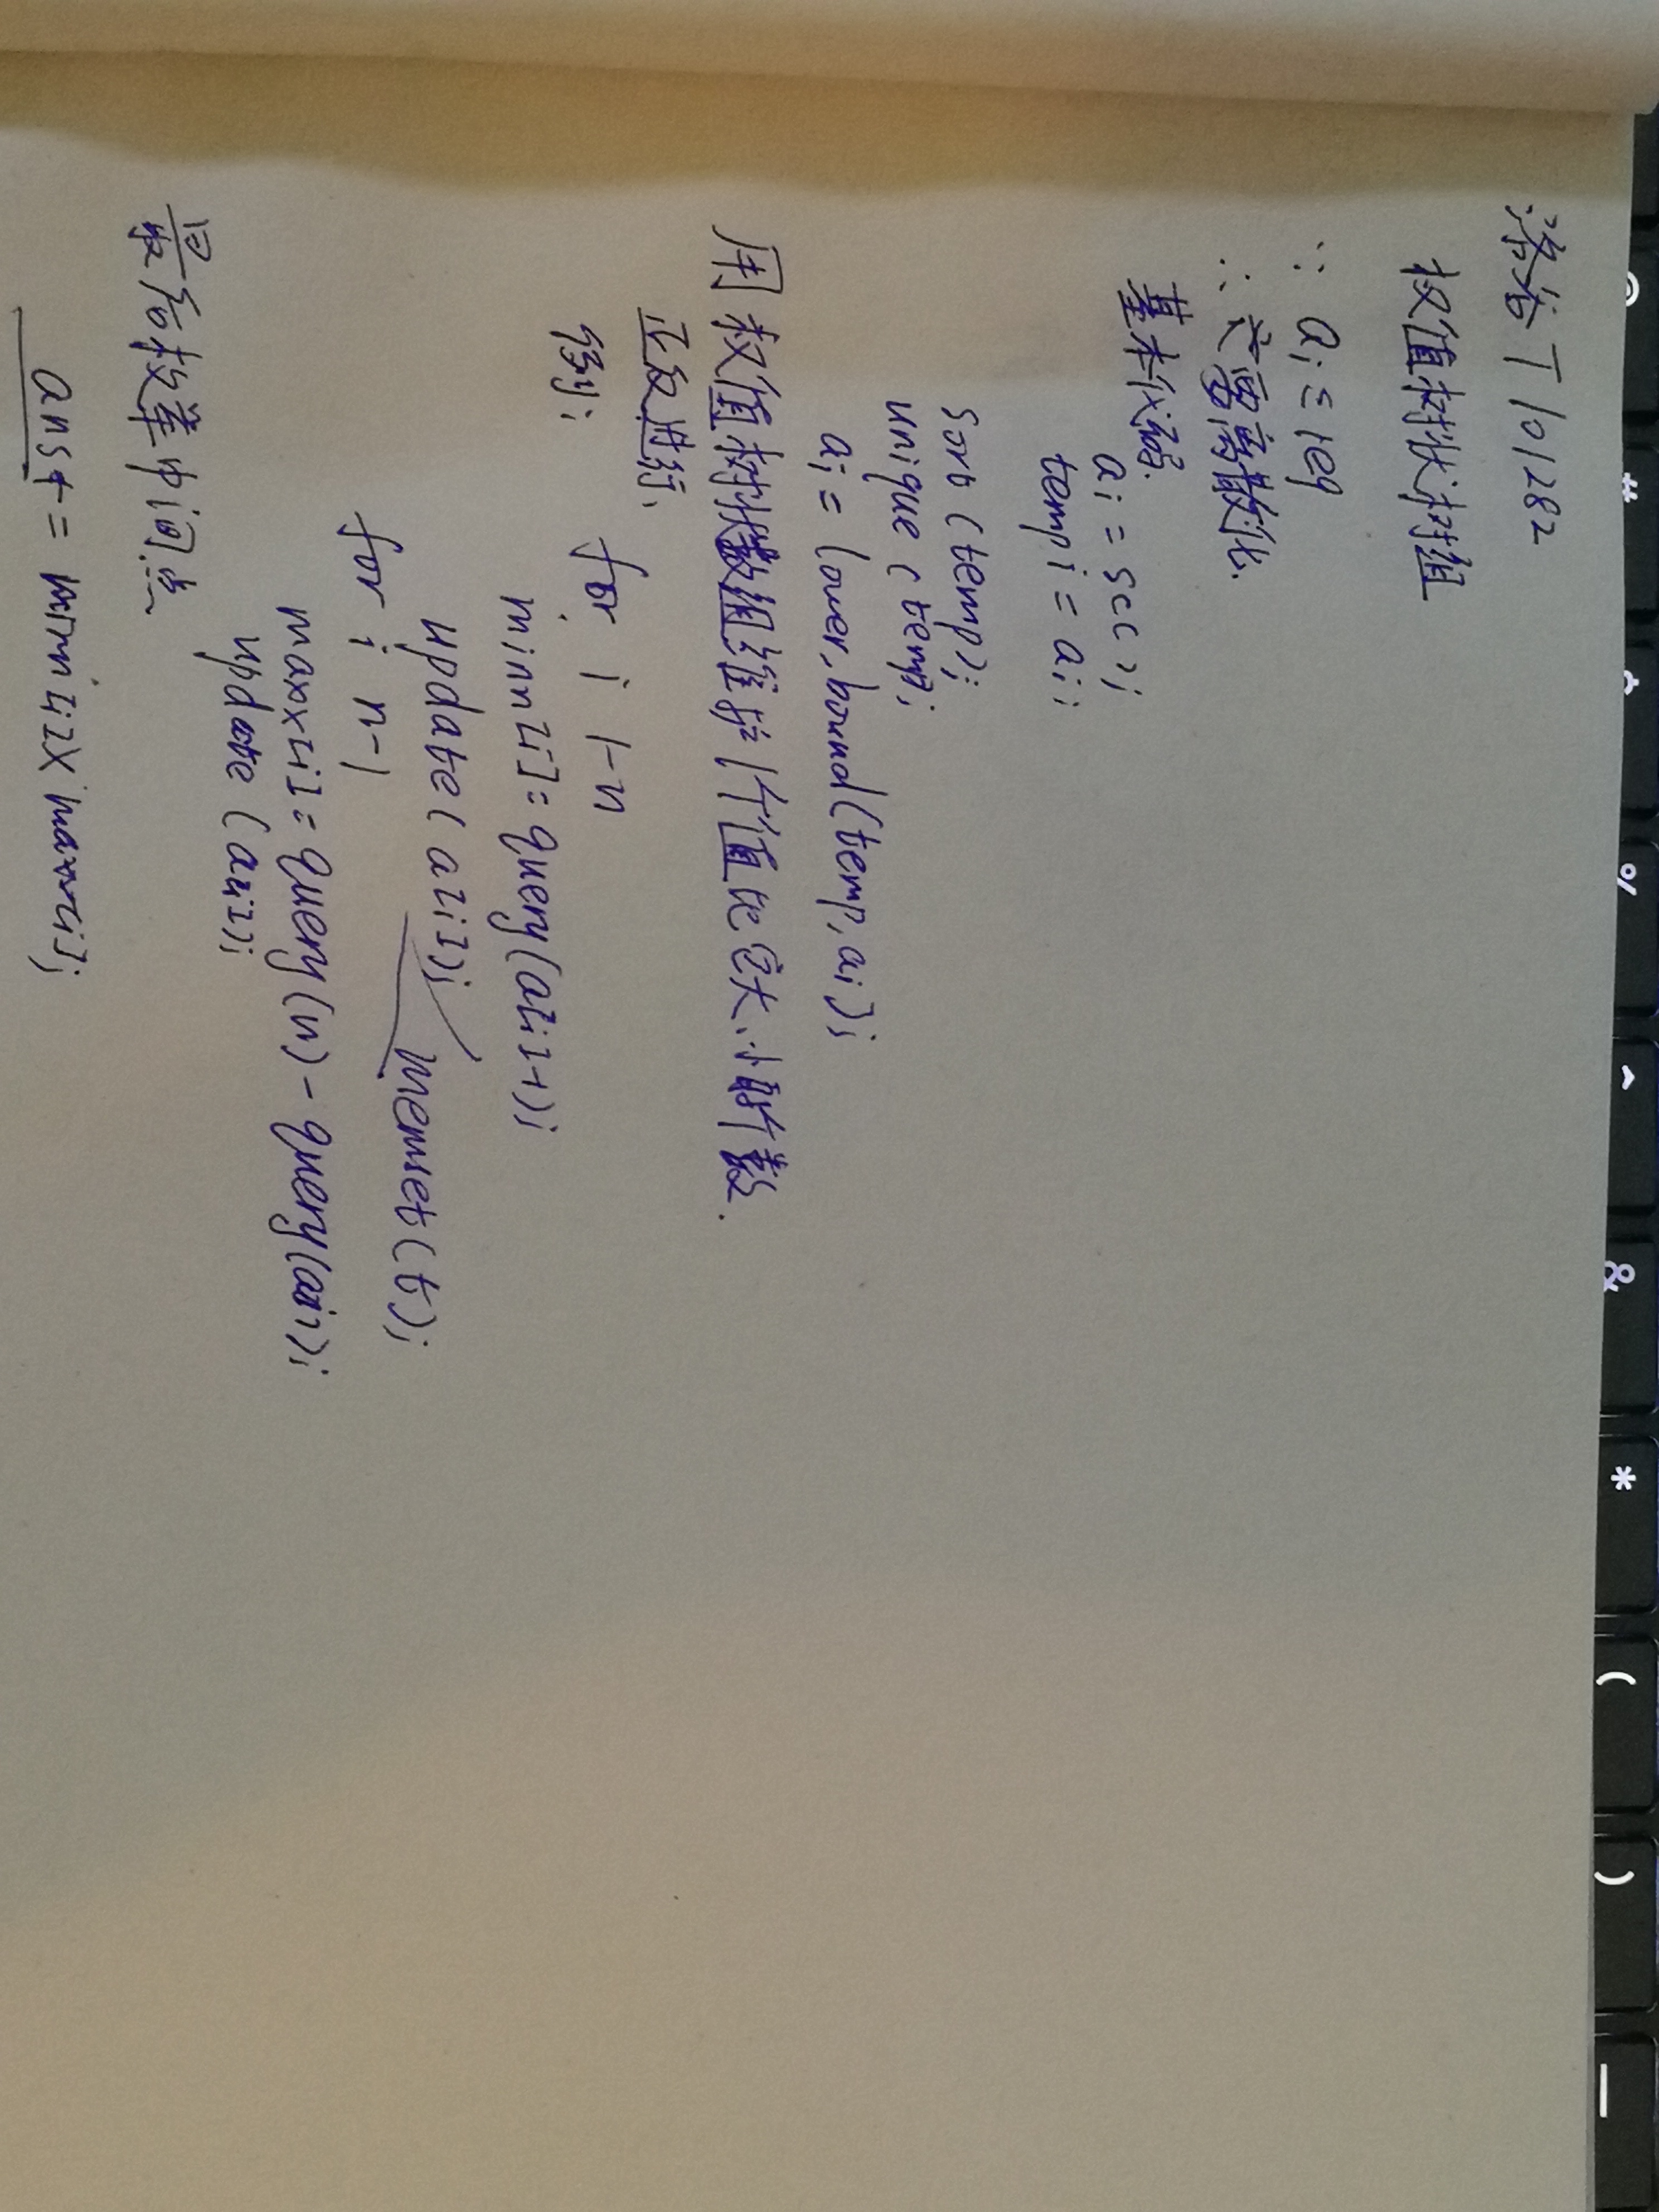 @ # $ % ^ & * ( ) _
洛谷 T101282
权值树状树组
∵ ai ≤ 1e9
∴ 需要离散化.
基本代码.
ai = sc();
tempi = ai;
sort (temp);
unique (temp);
ai = lower_bound(temp, ai);
用权值树状数组维护1个值比它大、小的个数.
正反进行、
例:
for i 1-n
minn[i] = query(a[i]-1);
update(a[i]);
memset(t);
for i n-1
maxx[i] = query(n) - query(a[i]);
update (a[i]);
最后枚举中间点
ans += minn[i] X maxx[i];